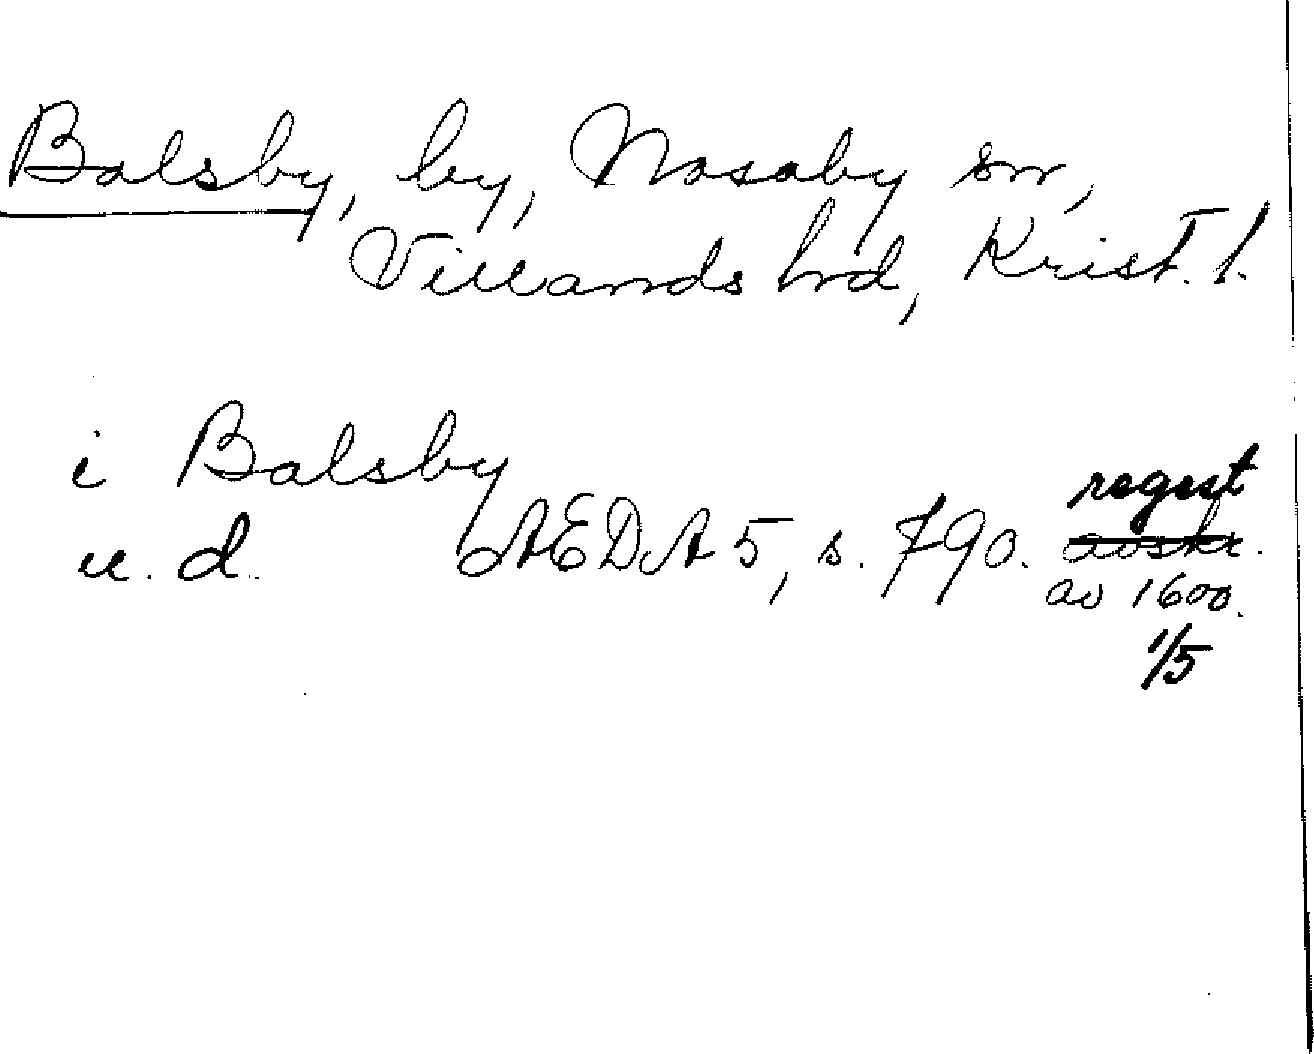 Balsby, by, Nosaby sn,
Villands hd, Krist. l.
i Balsby
regest
u. d. ÆDA 5, s. 790. avskr.
av 1600.
1/5